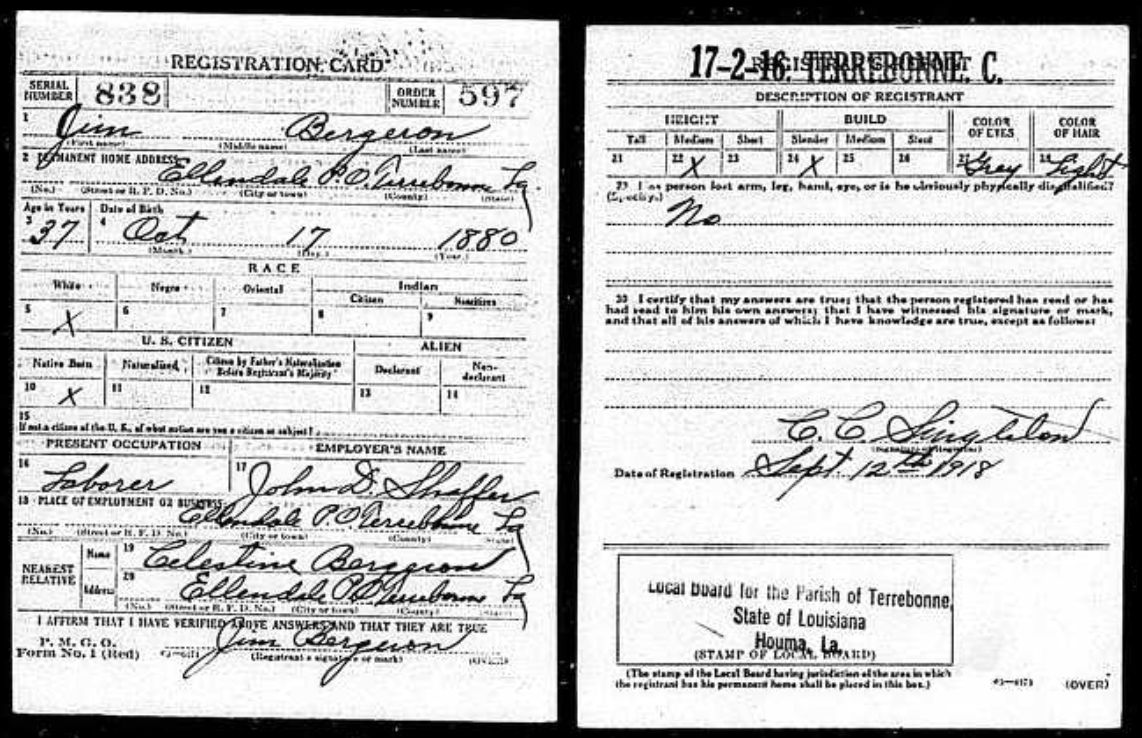 REGISTRATION CARD
SERIAL NUMBER 838 ORDER NUMBER 597
1 Jim Bergeron
(First name) (Middle name) (Last name)
2 PERMANENT HOME ADDRESS
Ellendale P.O. Terrebonne La
(No.) (Street or R. F. D. No.) (City or town) (County) (State)
Age in Years Date of Birth
3 37 4 Oct 17 1880
(Month.) (Day.) (Year.)
RACE
White Negro Oriental Indian
Citizen Noncitizen
5 X 6 7 8 9
U. S. CITIZEN ALIEN
Native Born Naturalized Citizen by Father's Naturalization Before Registrant's Majority Declarant Non-declarant
10 X 11 12 13 14
15
If not a citizen of the U. S., of what nation are you a citizen or subject?
PRESENT OCCUPATION EMPLOYER'S NAME
16 Laborer 17 John D. Shaffer
18 PLACE OF EMPLOYMENT OR BUSINESS
Ellendale P.O. Terrebonne La
(No.) (Street or R. F. D. No.) (City or town) (County) (State)
NEAREST RELATIVE Name 19 Celestine Bergeron
Address 20 Ellendale P.O Terrebonne La
(No.) (Street or R. F. D. No.) (City or town) (County) (State)
I AFFIRM THAT I HAVE VERIFIED ABOVE ANSWERS AND THAT THEY ARE TRUE
P. M. G. O.
Form No. 1 (Red) Jim Bergeron
(Registrant's signature or mark) (OVER)
REGISTRAR'S REPORT
17-2-16. TERREBONNE. C.
DESCRIPTION OF REGISTRANT
HEIGHT BUILD COLOR OF EYES COLOR OF HAIR
Tall Medium Short Slender Medium Stout
21 22 X 23 24 X 25 26 27 Grey 28 Light
29 Has person lost arm, leg, hand, eye, or is he obviously physically disqualified?
(Specify.)
No
30 I certify that my answers are true; that the person registered has read or has
had read to him his own answers; that I have witnessed his signature or mark,
and that all of his answers of which I have knowledge are true, except as follows:
C. C. Singleton
(Signature of Registrar)
Date of Registration Sept. 12th 1918
Local Board for the Parish of Terrebonne,
State of Louisiana
Houma, La.
(STAMP OF LOCAL BOARD)
(The stamp of the Local Board having jurisdiction of the area in which
the registrant has his permanent home shall be placed in this box.)
(OVER)